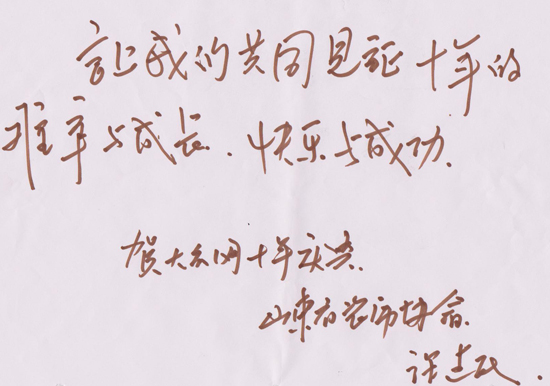 让我们共同见证十年的
艰辛与成长、快乐与成功.
贺大众网十年庆典.
山东省装饰协会